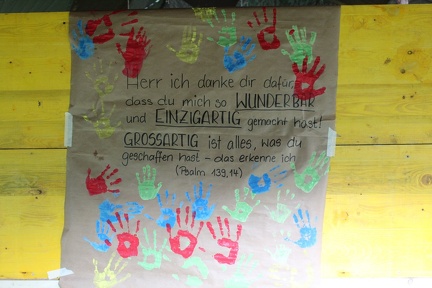 Herr ich danke dir dafür,
dass du mich so WUNDERBAR
und EINZIGARTIG gemacht hast!
GROSSARTIG ist alles, was du
geschaffen hast - das erkenne ich
(Psalm 139,14)